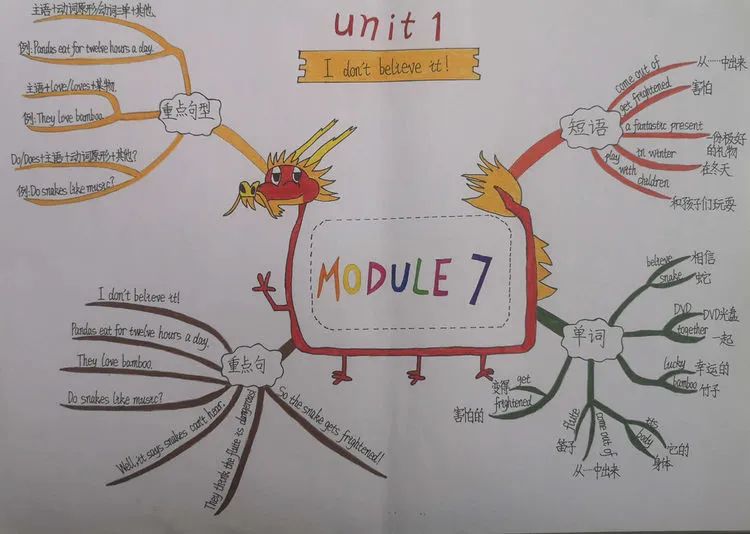 unit 1
I don't believe it!
MODULE 7
重点句型
主语+动词原形/动词三单+其他.
例:Pandas eat for twelve hours a day.
主语+love/loves+某物.
例:They love bamboo.
Do/Does+主语+动词原形+其他?
例:Do snakes like music?
短语
come out of
从……中出来
get frightened
害怕
a fantastic present
一份极好
的礼物
in winter
在冬天
play
with
children
和孩子们玩耍
重点句
I don't believe it!
Pandas eat for twelve hours a day.
They love bamboo.
Do snakes like music?
Well, it says snakes can't hear.
They think the flute is dangerous!
So the snake gets frightened!
单词
believe
相信
snake
蛇
DVD
DVD光盘
together
一起
lucky
幸运的
bamboo
竹子
its
它的
body
身体
come out of
从一中出来
flute
笛子
get
变得
frightened
害怕的